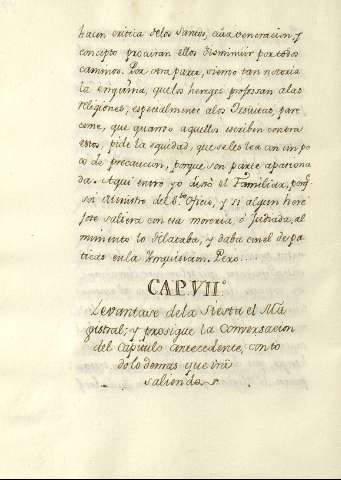 hacen critica de los Santos, cuia veneracion, y
concepto procuran ellos disminuir por todos
caminos. Por otra parte, siendo tan notoria
la enquina, que los hereges professan a las
religiones, especialmente a los Jesuitas, pare
ceme, que quanto aquellos escriben contra
estos, pide la equidad, que se les lea con un po
co de precaucion, porque son parte apasiona
da. Aqui entro yo dixo el Familiar, porq.
soi Ministro del S.to Oficio, y si algun here
jote saliera con essa mororia, ò Judiada, al
mimento lo delataba, y daba con el de pa
ticas en la Inquisicion. Pero
CAP. VII.º
Levantase de la siesta el Ma
gistral; y prosigue la Conversacion
del Capitulo antecedente, con to
do lo demas que irà
saliendo.